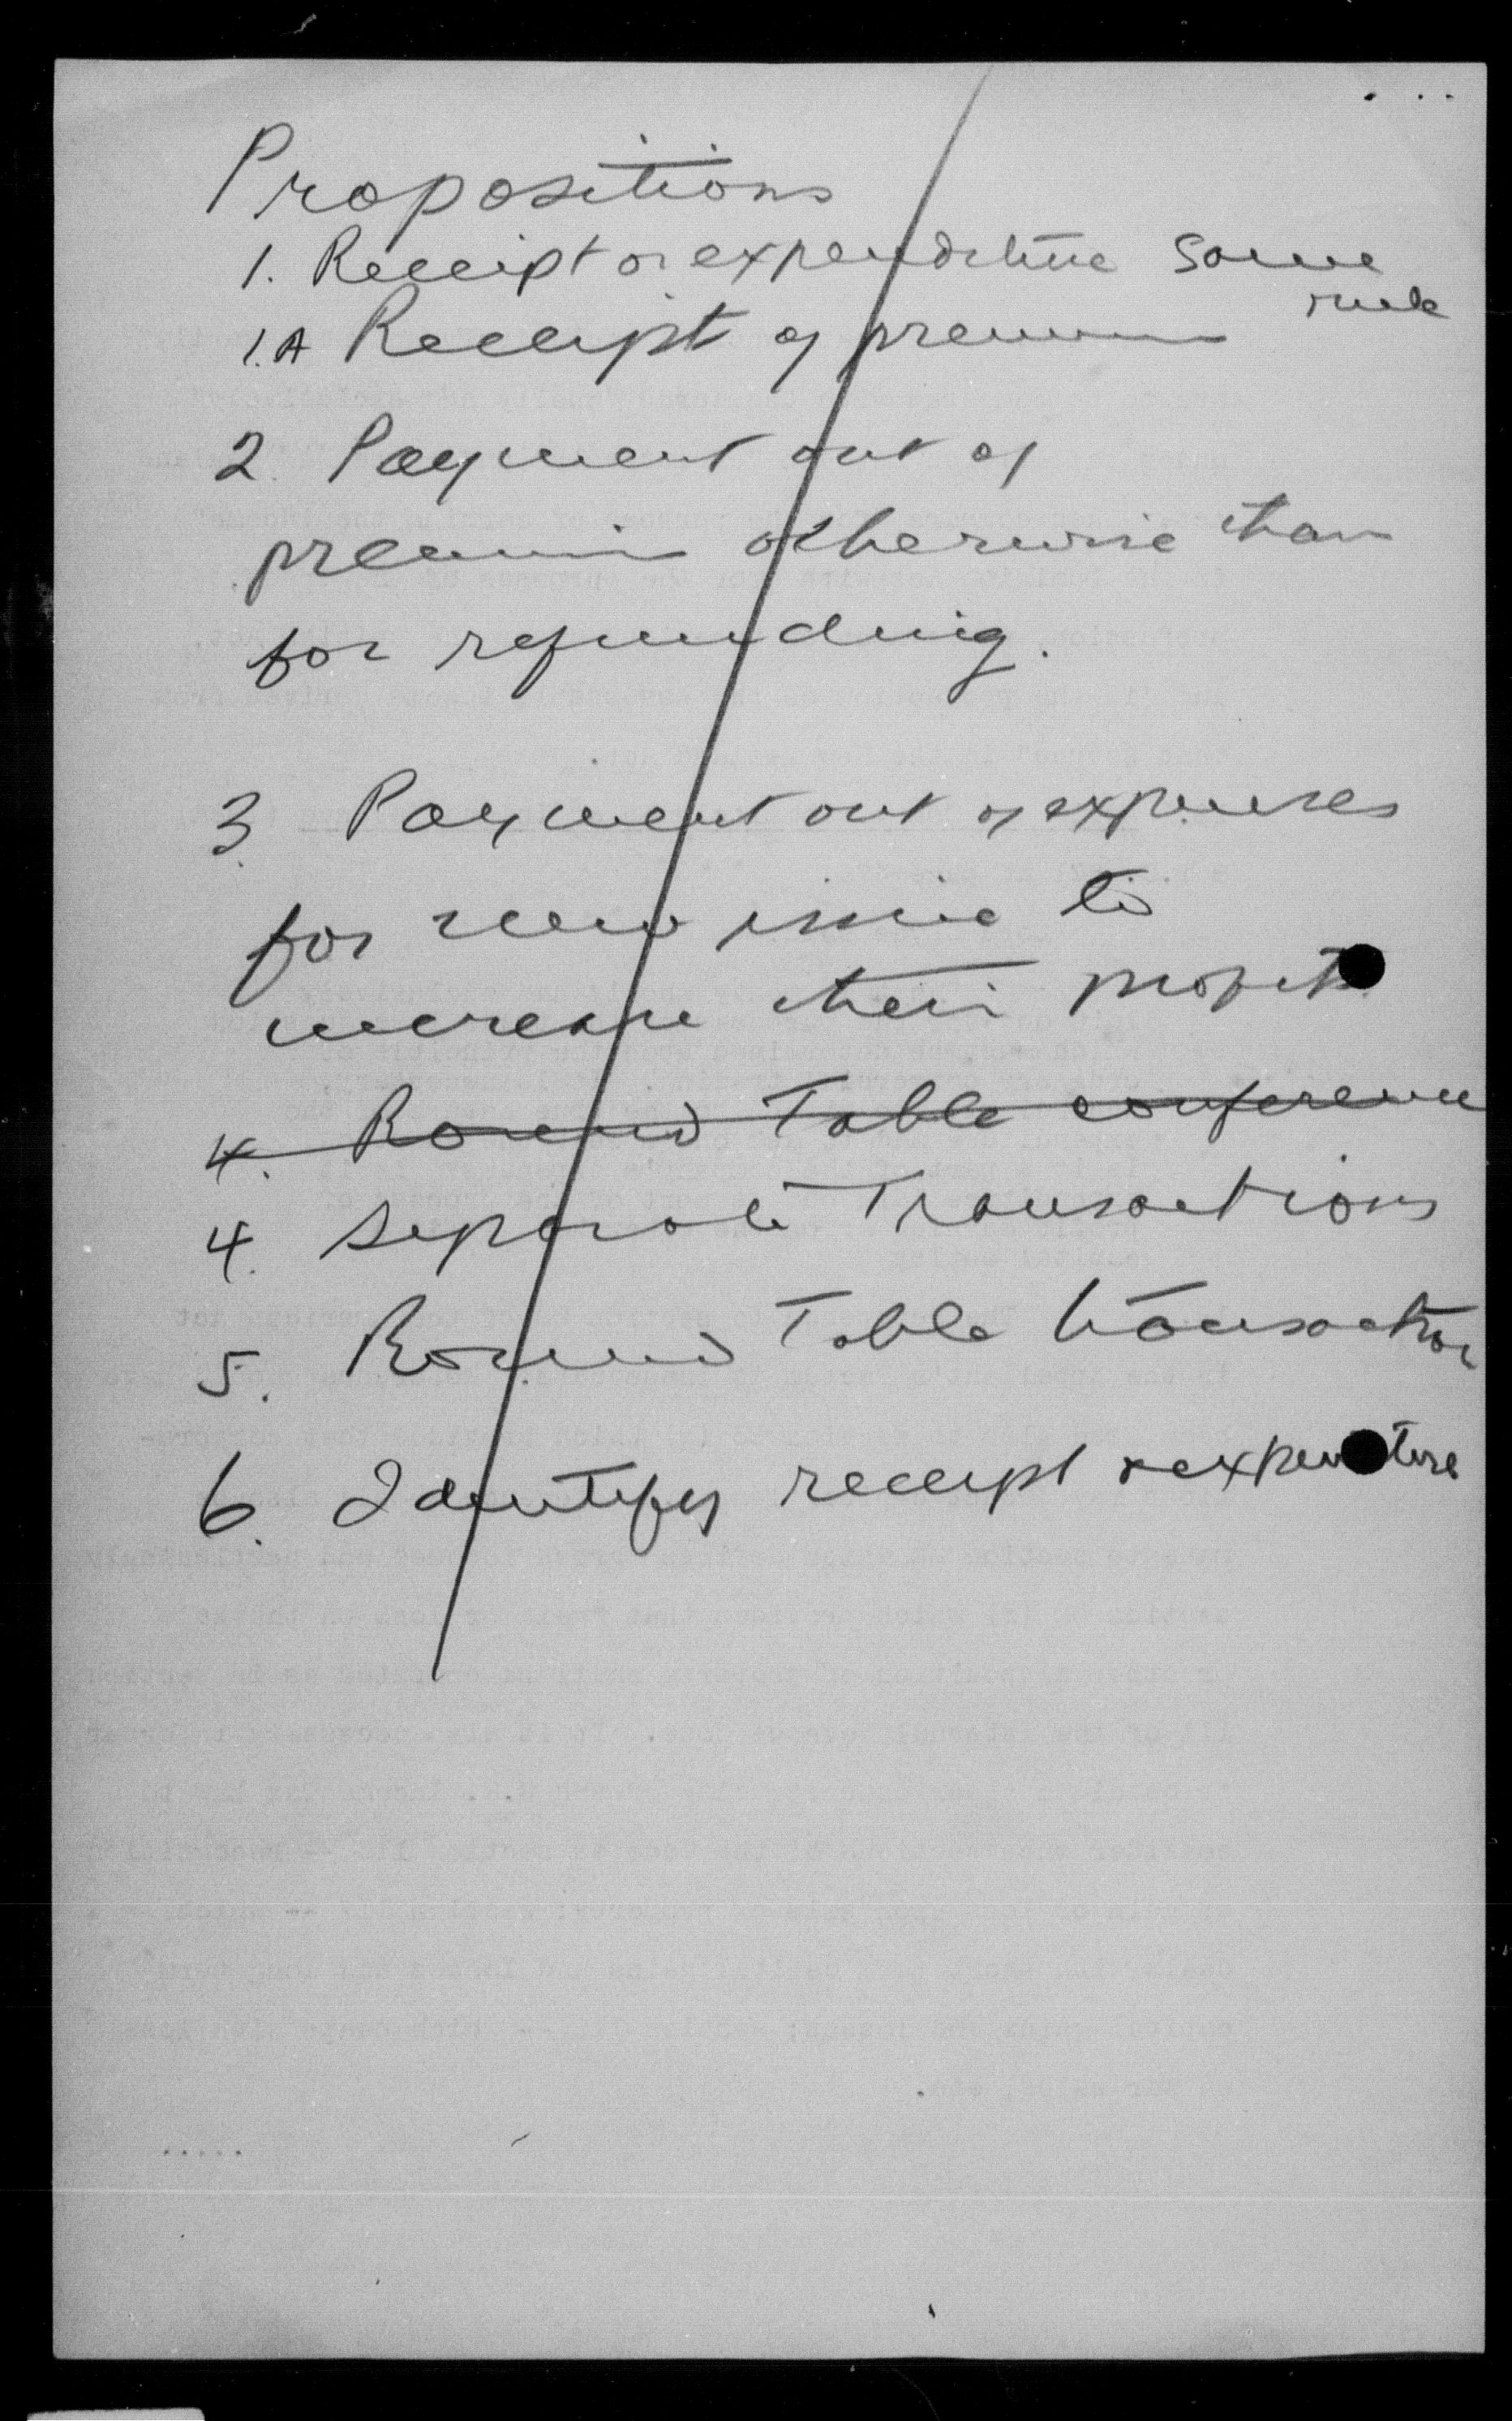 Propositions
1. Receipt or expenditure same
rule
1.A Receipt of premium
2. Payment out of
premium otherwise than
for refunding.
3. Payment out of expenses
for new issue to
increase their profit
4. Round Table conference
4. Separate Transactions
5. Round Table transaction
6. Identify receipt or expenditure